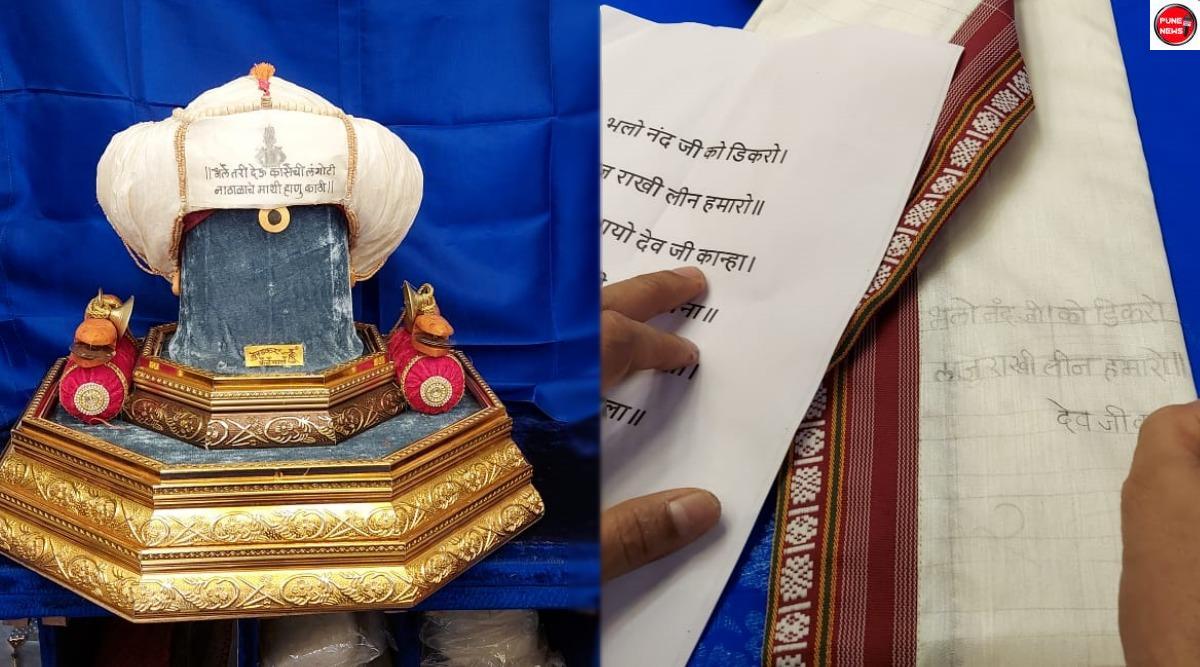 PUNE
NEWS
॥भले तरी देऊ कासेची लंगोटी
नाठाळाचे माथी हाणू काठी॥
भलो नंद जी को डिकरो।
राखी लीन हमारो॥
देव जी कान्हा।
भलो नंद जी को डिकरो
लाज राखी लीन हमारो॥
देव जी